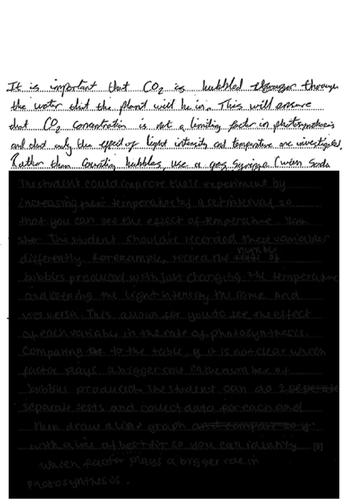 It is important that CO2 is bubbled through
the water that the plant will be in. This will ensure
that CO2 concentration is not a limiting factor in photosynthesis
and that only the effect of light intensity and temperature are investigated.
Rather than counting bubbles, use a gas syringe (when
The student could improve their experiment by
increasing their temperature by a set interval so
that you can see the effect of temperature.
The student should recorded these variables
differently. For example, record the number of
bubbles produced with just changing the temperature
and keeping the light intensity the same and
vice versa. This allows for you to see the effect
of each variable in the rate of photosynthesis.
Comparing to the table, it is not clear which
factor plays a bigger role in the number of
bubbles produced. The student can do 2 seperate
separate tests and collect data for each and
then draw a line graph
with a line of best fit so you can identify
which factor plays a bigger role in
photosynthesis.